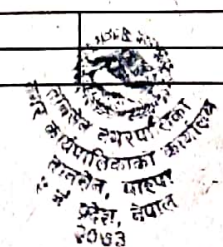 तानसेन नगरपालिका
नगर कार्यपालिकाको कार्यालय
तानसेन, पाल्पा
प्रदेश, नेपाल
२०७३